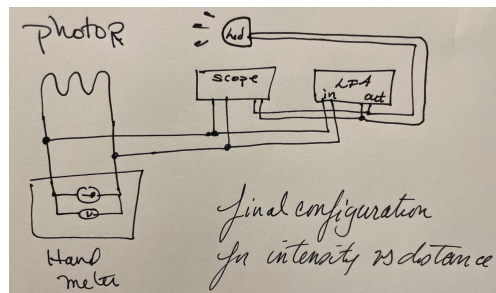 photoR
led
scope
LIA
in
out
Hand
meter
final configuration
for intensity vs distance